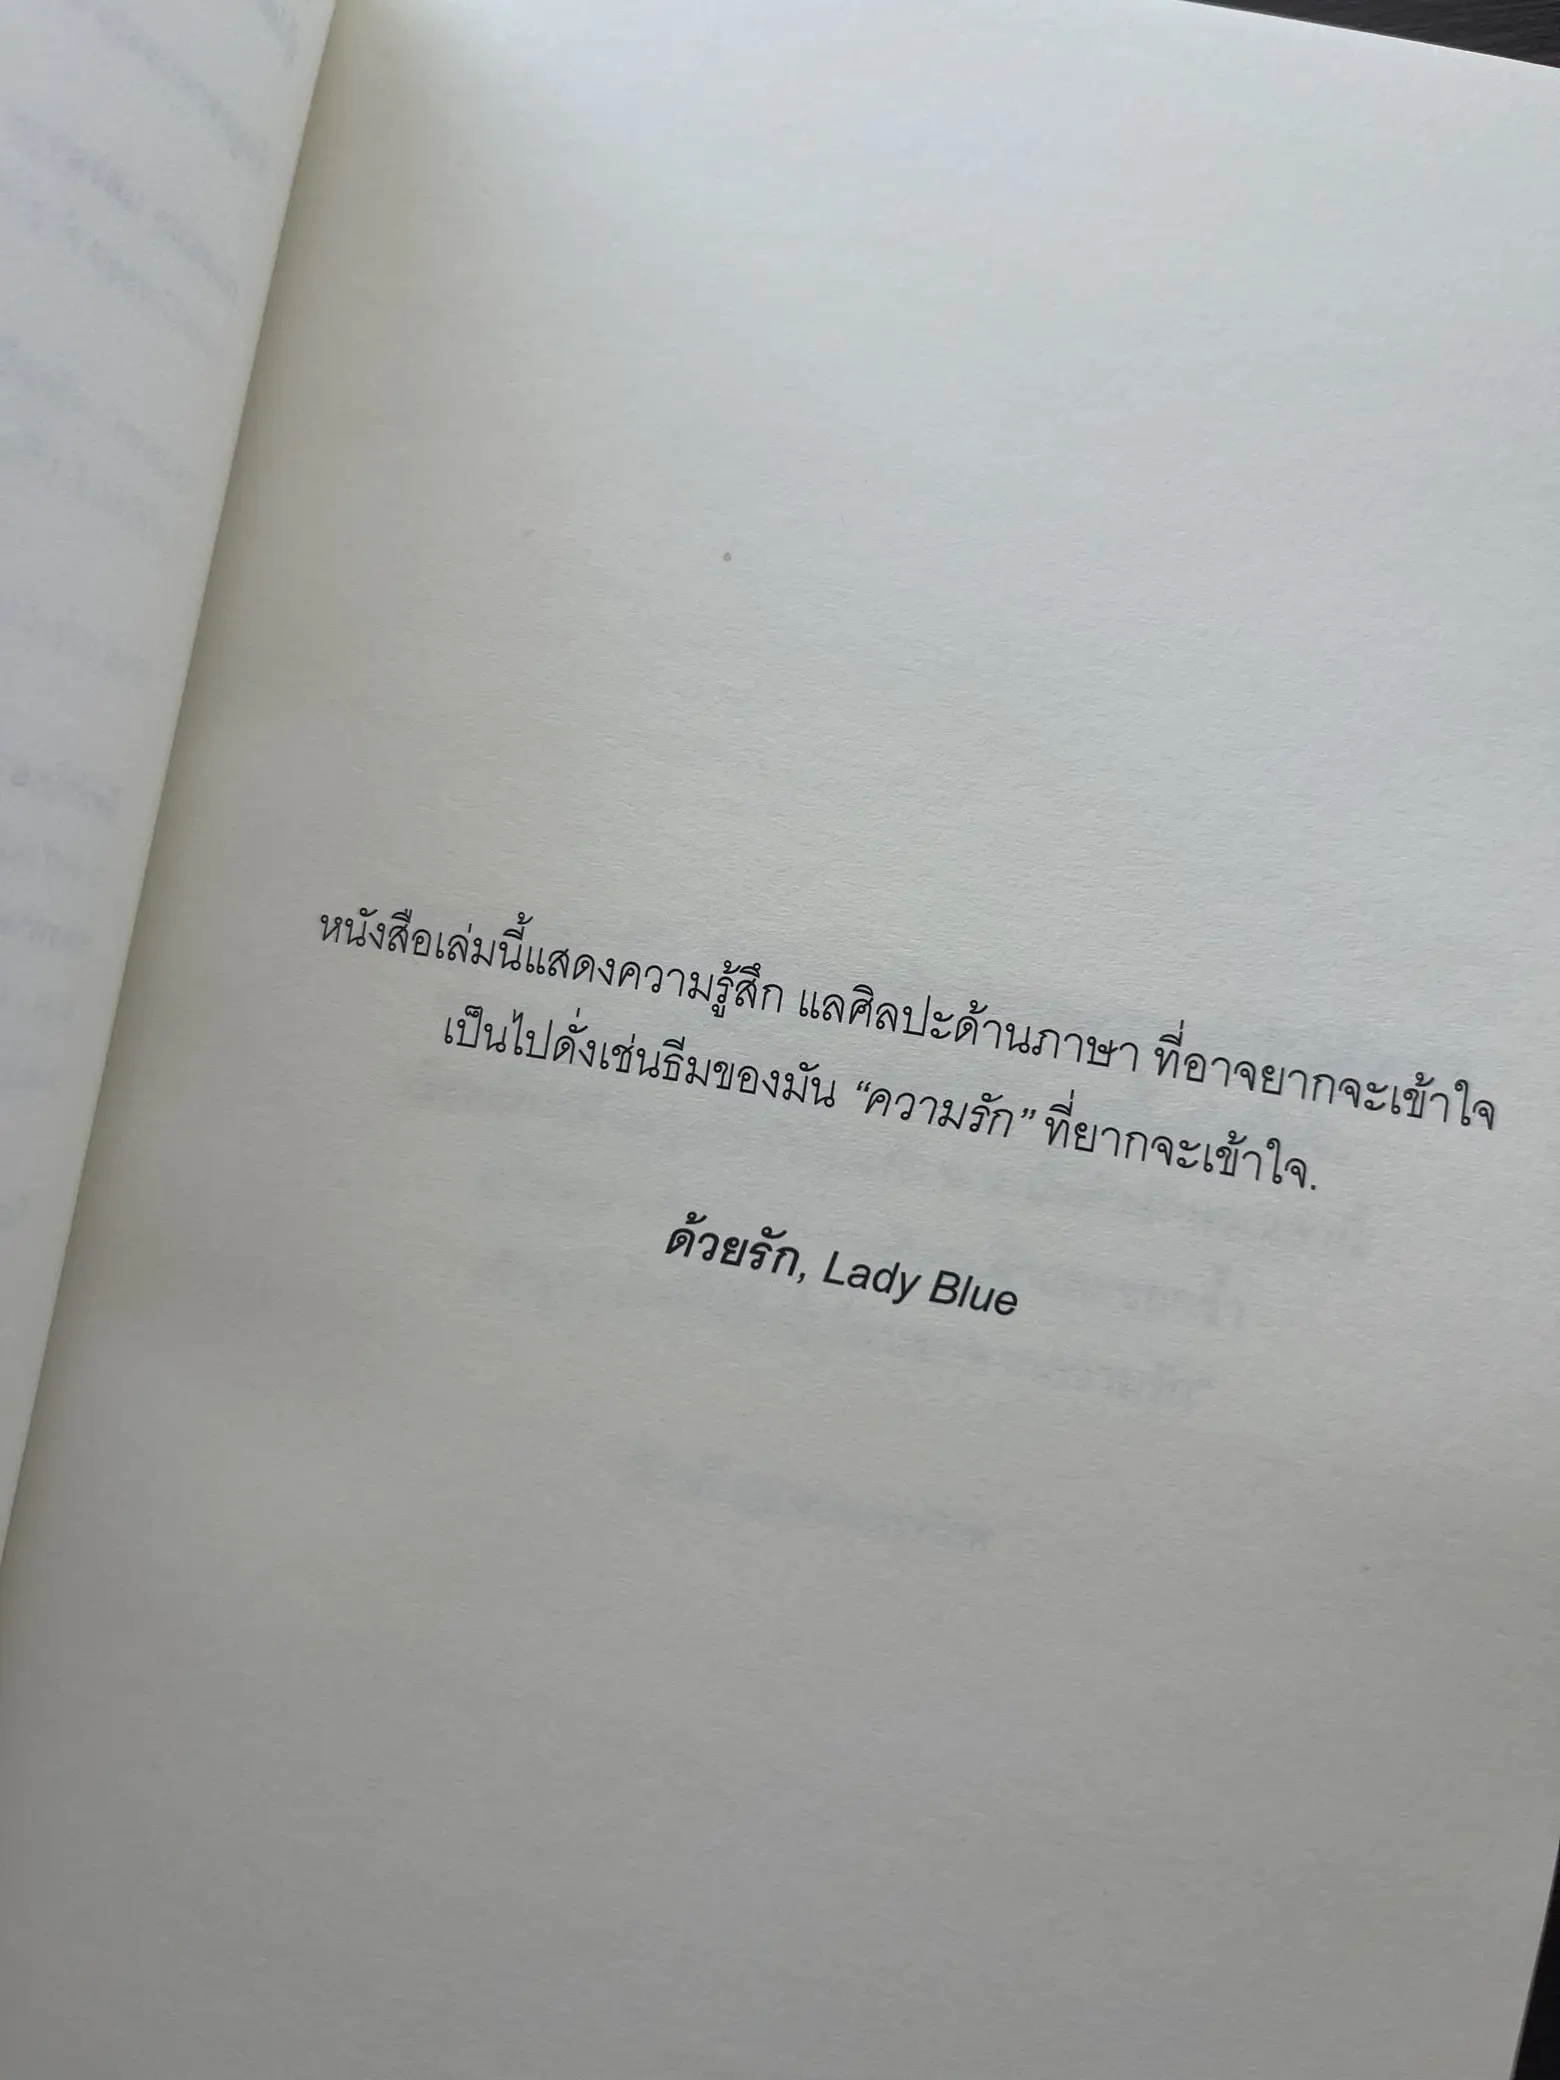 หนังสือเล่มนี้แสดงความรู้สึก แลศิลปะด้านภาษา ที่อาจยากจะเข้าใจ
เป็นไปดั่งเช่นธีมของมัน “ความรัก” ที่ยากจะเข้าใจ.
ด้วยรัก, Lady Blue